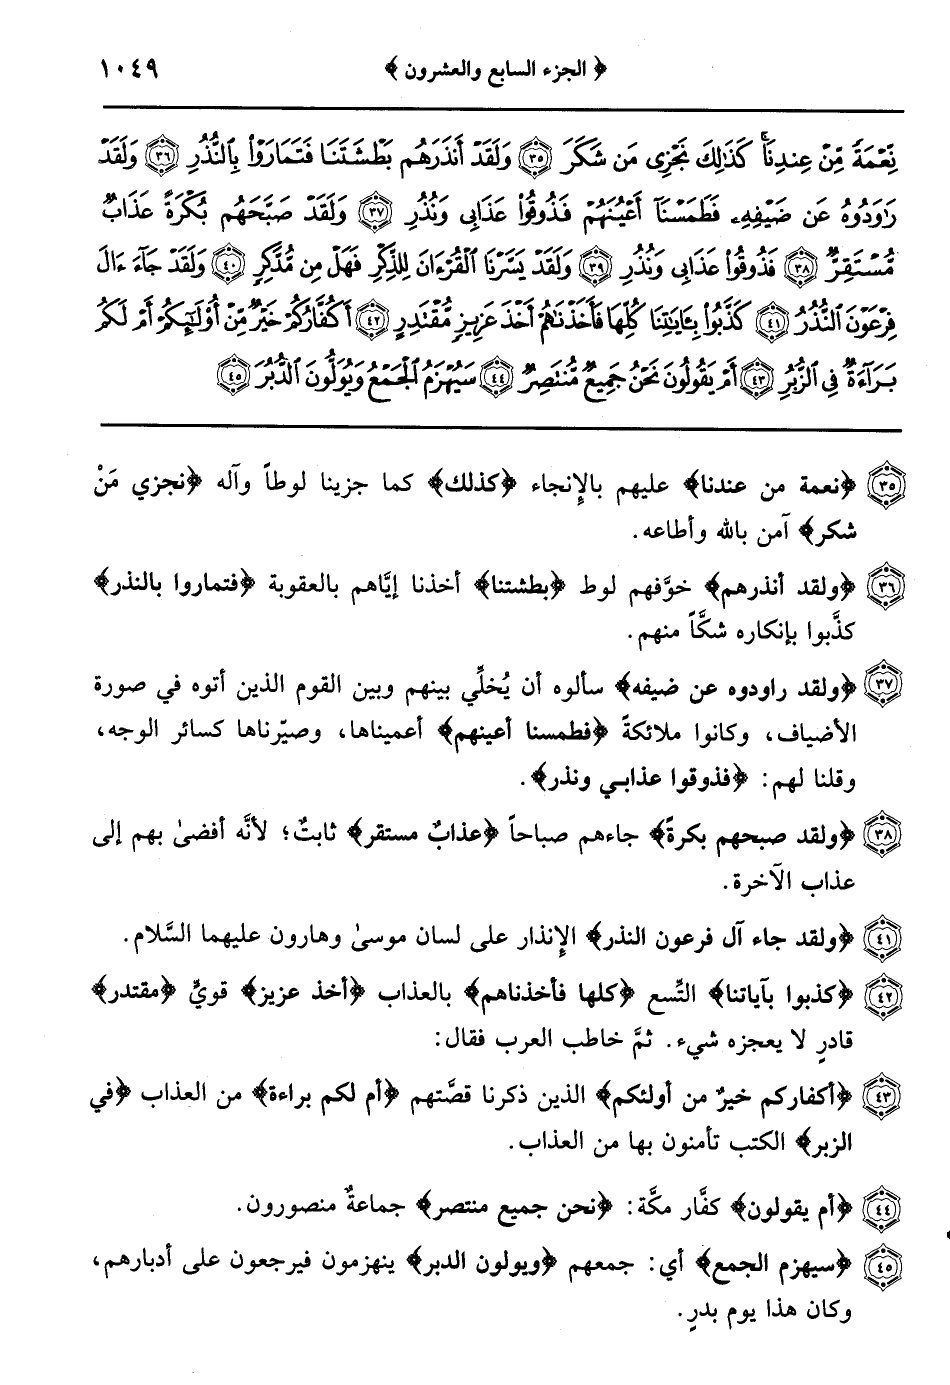 ﴿ الجزء السابع والعشرون ﴾ ١٠٤٩
نِّعْمَةً مِّنْ عِندِنَا ۚ كَذَٰلِكَ نَجْزِى مَن شَكَرَ ٣٥ وَلَقَدْ أَنذَرَهُم بَطْشَتَنَا فَتَمَارَوْا۟ بِٱلنُّذُرِ ٣٦ وَلَقَدْ
رَٰوَدُوهُ عَن ضَيْفِهِۦ فَطَمَسْنَآ أَعْيُنَهُمْ فَذُوقُوا۟ عَذَابِى وَنُذُرِ ٣٧ وَلَقَدْ صَبَّحَهُم بُكْرَةً عَذَابٌ
مُّسْتَقِرٌّ ٣٨ فَذُوقُوا۟ عَذَابِى وَنُذُرِ ٣٩ وَلَقَدْ يَسَّرْنَا ٱلْقُرْءَانَ لِلذِّكْرِ فَهَلْ مِن مُّدَّكِرٍ ٤٠ وَلَقَدْ جَآءَ ءَالَ
فِرْعَوْنَ ٱلنُّذُرُ ٤١ كَذَّبُوا۟ بِـَٔايَٰتِنَا كُلِّهَا فَأَخَذْنَٰهُمْ أَخْذَ عَزِيزٍ مُّقْتَدِرٍ ٤٢ أَكُفَّارُكُمْ خَيْرٌ مِّنْ أُو۟لَٰٓئِكُمْ أَمْ لَكُم
بَرَآءَةٌ فِى ٱلزُّبُرِ ٤٣ أَمْ يَقُولُونَ نَحْنُ جَمِيعٌ مُّنتَصِرٌ ٤٤ سَيُهْزَمُ ٱلْجَمْعُ وَيُوَلُّونَ ٱلدُّبُرَ ٤٥
٣٥ ﴿نعمة من عندنا﴾ عليهم بالإِنجاء ﴿كذلك﴾ كما جزينا لوطاً وآله ﴿نجزي مَنْ
شكر﴾ آمن بالله وأطاعه.
٣٦ ﴿ولقد أنذرهم﴾ خوَّفهم لوط ﴿بطشتنا﴾ أخذنا إيَّاهم بالعقوبة ﴿فتماروا بالنذر﴾
كذَّبوا بإنكاره شكَّاً منهم.
٣٧ ﴿ولقد راودوه عن ضيفه﴾ سألوه أن يُخلِّي بينهم وبين القوم الذين أتوه في صورة
الأضياف، وكانوا ملائكةً ﴿فطمسنا أعينهم﴾ أعميناها، وصيّرناها كسائر الوجه،
وقلنا لهم: ﴿فذوقوا عذابـي ونذر﴾.
٣٨ ﴿ولقد صبحهم بكرةً﴾ جاءهم صباحاً ﴿عذابٌ مستقر﴾ ثابتٌ؛ لأنَّه أفضىٰ بهم إلى
عذاب الآخرة.
٤١ ﴿ولقد جاء آل فرعون النذر﴾ الإِنذار على لسان موسىٰ وهارون عليهما السَّلام.
٤٢ ﴿كذبوا بآياتنا﴾ التِّسع ﴿كلها فأخذناهم﴾ بالعذاب ﴿أخذ عزيز﴾ قويٍّ ﴿مقتدر﴾
قادرٍ لا يعجزه شيء. ثمَّ خاطب العرب فقال:
٤٣ ﴿أكفاركم خيرٌ من أولئكم﴾ الذين ذكرنا قصَّتهم ﴿أم لكم براءة﴾ من العذاب ﴿في
الزبر﴾ الكتب تأمنون بها من العذاب.
٤٤ ﴿أم يقولون﴾ كفَّار مكَّة: ﴿نحن جميع منتصر﴾ جماعةٌ منصورون.
٤٥ ﴿سيهزم الجمع﴾ أي: جمعهم ﴿ويولون الدبر﴾ ينهزمون فيرجعون على أدبارهم،
وكان هذا يوم بدرٍ.